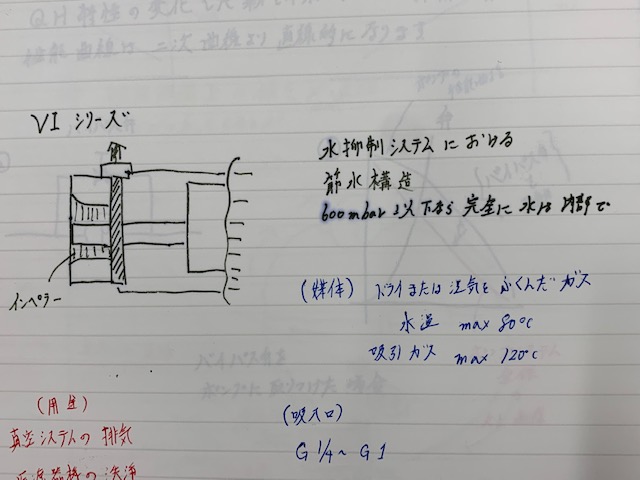 VI シリーズ
水抑制システムにおける
節水構造
600mbar以下なら完全に水は内部で
インペラー
(媒体) ドライまたは湿気をふくんだガス
水温 max 80℃
吸引ガス max 120℃
(用途)
真空システムの排気
の洗浄
(吸入口)
G 1/4 ~ G1